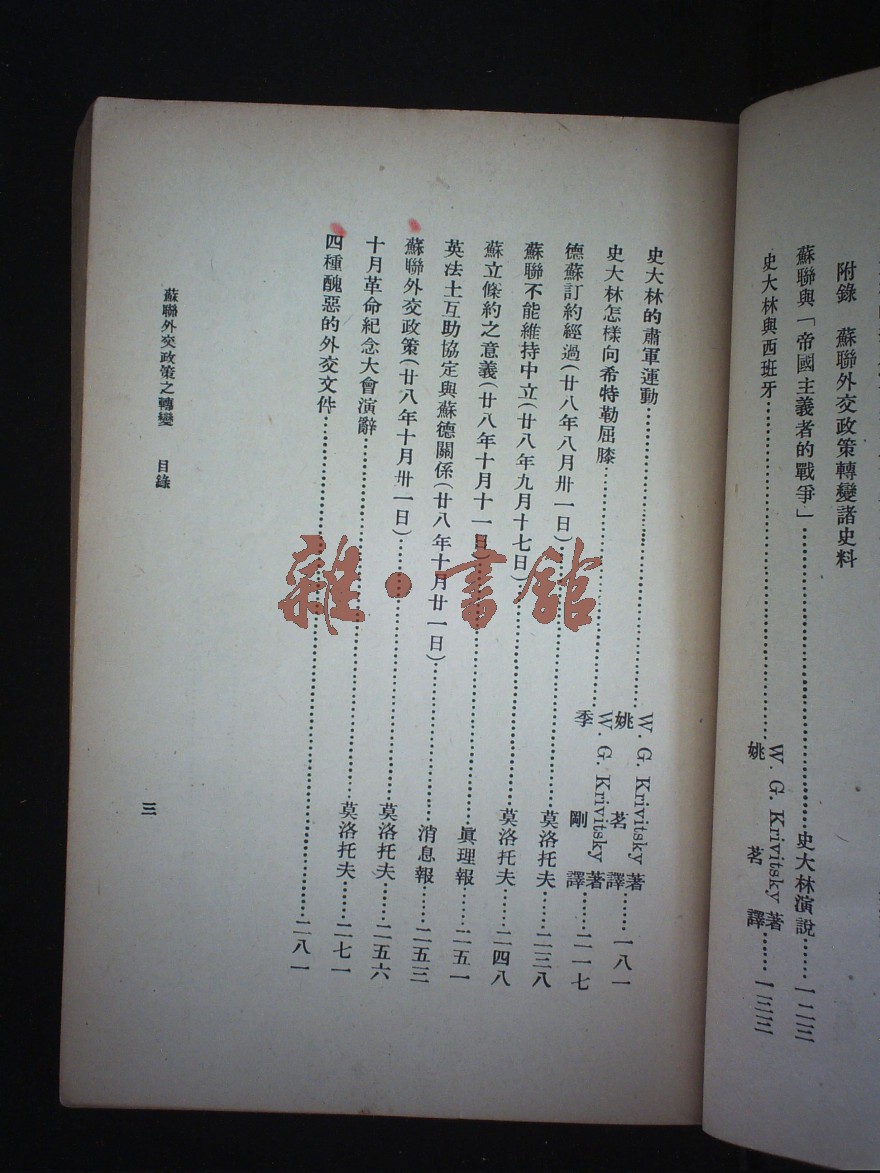 附錄　蘇聯外交政策轉變諸史料
蘇聯與「帝國主義者的戰爭」……史大林演說……一二三
史大林與西班牙……W. G. Krivitsky著 姚茗譯……一三三
史大林的肅軍運動……W. G. Krivitsky著 姚茗譯……一八一
史大林怎樣向希特勒屈膝……W. G. Krivitsky著 季剛譯……二一七
德蘇訂約經過(廿八年八月卅一日)……莫洛托夫……二三八
蘇聯不能維持中立(廿八年九月十七日)……莫洛托夫……二四八
蘇立條約之意義(廿八年十月十一日)……眞理報……二五一
英法土互助協定與蘇德關係(廿八年十月廿一日)……消息報……二五三
蘇聯外交政策(廿八年十月卅一日)……莫洛托夫……二五六
十月革命紀念大會演辭……莫洛托夫……二七一
四種醜惡的外交文件……二八一
蘇聯外交政策之轉變　目錄
三
雜·書館